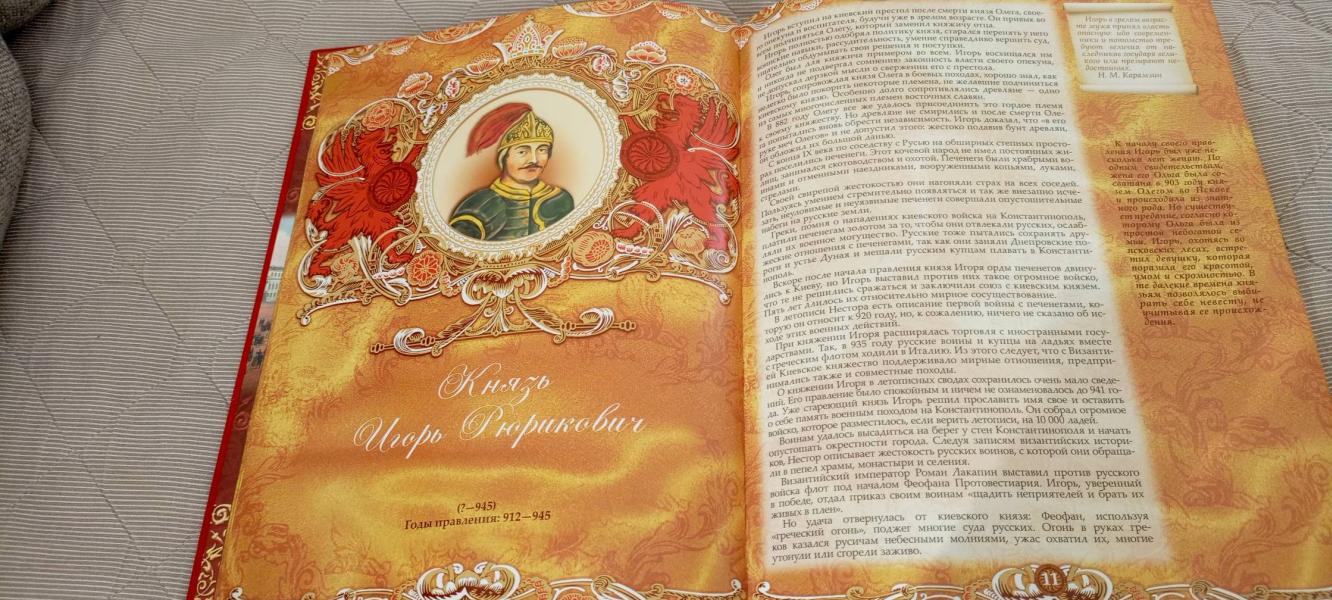 Князь
Игорь Рюрикович
(?—945)
Годы правления: 912—945
Игорь вступил на киевский престол после смерти князя Олега, свое-
го опекуна и воспитателя, будучи уже в зрелом возрасте. Он привык во
всем подчиняться Олегу, который заменил княжичу отца.
Игорь полностью одобрял политику князя, старался перенять у него
воинские навыки, рассудительность, умение справедливо вершить суд,
тщательно обдумывать свои решения и поступки.
Олег был для княжича примером во всем. Игорь восхищался им
и никогда не подвергал сомнению законность власти своего опекуна,
не допускал дерзкой мысли о свержении его с престола.
Игорь, сопровождая князя Олега в боевых походах, хорошо знал, как
нелегко было покорить некоторые племена, не желавшие подчиниться
киевскому князю. Особенно долго сопротивлялись древляне — одно
из самых многочисленных племен восточных славян.
В 882 году Олегу все же удалось присоединить это гордое племя
к своему княжеству. Но древляне не смирились и после смерти Оле-
га попытались вновь обрести независимость. Игорь доказал, что «в его
руке меч Олегов» и не допустил этого: жестоко подавив бунт древлян,
он обложил их большой данью.
С конца IX века по соседству с Русью на обширных степных просто-
рах поселились печенеги. Этот кочевой народ не имел постоянных жи-
лищ, занимался скотоводством и охотой. Печенеги были храбрыми во-
инами и отменными наездниками, вооруженными копьями, луками,
стрелами.
Своей свирепой жестокостью они нагоняли страх на всех соседей.
Пользуясь умением стремительно появляться и так же внезапно исче-
зать, неуловимые и неуязвимые печенеги совершали опустошительные
набеги на русские земли.
Греки, помня о нападениях киевского войска на Константинополь,
платили печенегам золотом за то, чтобы они отвлекали русских, ослаб-
ляли их военное могущество. Русские тоже пытались сохранять дру-
жеские отношения с печенегами, так как они заняли Днепровские по-
роги и устье Дуная и мешали русским купцам плавать в Константи-
нополь.
Вскоре после начала правления князя Игоря орды печенегов двину-
лись к Киеву, но Игорь выставил против них такое огромное войско,
что те не решились сражаться и заключили союз с киевским князем.
Пять лет длилось их относительно мирное сосуществование.
В летописи Нестора есть описание первой войны с печенегами, ко-
торую он относит к 920 году, но, к сожалению, ничего не сказано об ис-
ходе этих военных действий.
При княжении Игоря расширялась торговля с иностранными госу-
дарствами. Так, в 935 году русские воины и купцы на ладьях вместе
с греческим флотом ходили в Италию. Из этого следует, что с Византи-
ей Киевское княжество поддерживало мирные отношения, предпри-
нимались также и совместные походы.
О княжении Игоря в летописных сводах сохранилось очень мало сведе-
ний. Его правление было спокойным и ничем не ознаменовалось до 941 го-
да. Уже стареющий князь Игорь решил прославить имя свое и оставить
о себе память военным походом на Константинополь. Он собрал огромное
войско, которое разместилось, если верить летописи, на 10 000 ладей.
Воинам удалось высадиться на берег у стен Константинополя и начать
опустошать окрестности города. Следуя записям византийских истори-
ков, Нестор описывает жестокость русских воинов, с которой они обраща-
ли в пепел храмы, монастыри и селения.
Византийский император Роман Лакапин выставил против русского
войска флот под началом Феофана Протовестиария. Игорь, уверенный
в победе, отдал приказ своим воинам «щадить неприятелей и брать их
живых в плен».
Но удача отвернулась от киевского князя: Феофан, используя
«греческий огонь», поджег многие суда русских. Огонь в руках гре-
ков казался русичам небесными молниями, ужас охватил их, многие
утонули или сгорели заживо.
Игорь в зрелом возрас-
те мужа принял власть
опасную: ибо современ-
ники и потомство тре-
буют величия от на-
следников государя вели-
кого или презирают не-
достойных.
Н. М. Карамзин
К началу своего прав-
ления Игорь был уже не-
сколько лет женат. По
одним свидетельствам,
жена его Ольга была со-
сватана в 903 году кня-
зем Олегом во Пскове
и происходила из знат-
ного рода. Но существу-
ет предание, согласно ко-
торому Ольга была из
простой небогатой се-
мьи. Игорь, охотясь во
псковских лесах, встре-
тил девушку, которая
поразила его красотой,
умом и скромностью. В
те далекие времена кня-
зьям позволялось выби-
рать себе невесту, не
учитывая ее происхож-
дения.
11